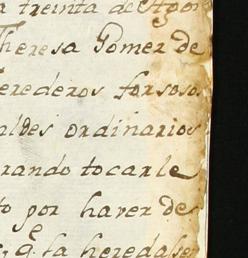 a treinta de Agos
Theresa Gomez de
erederos forsosos
aldes ordinarios
rando tocarle
to por haver de